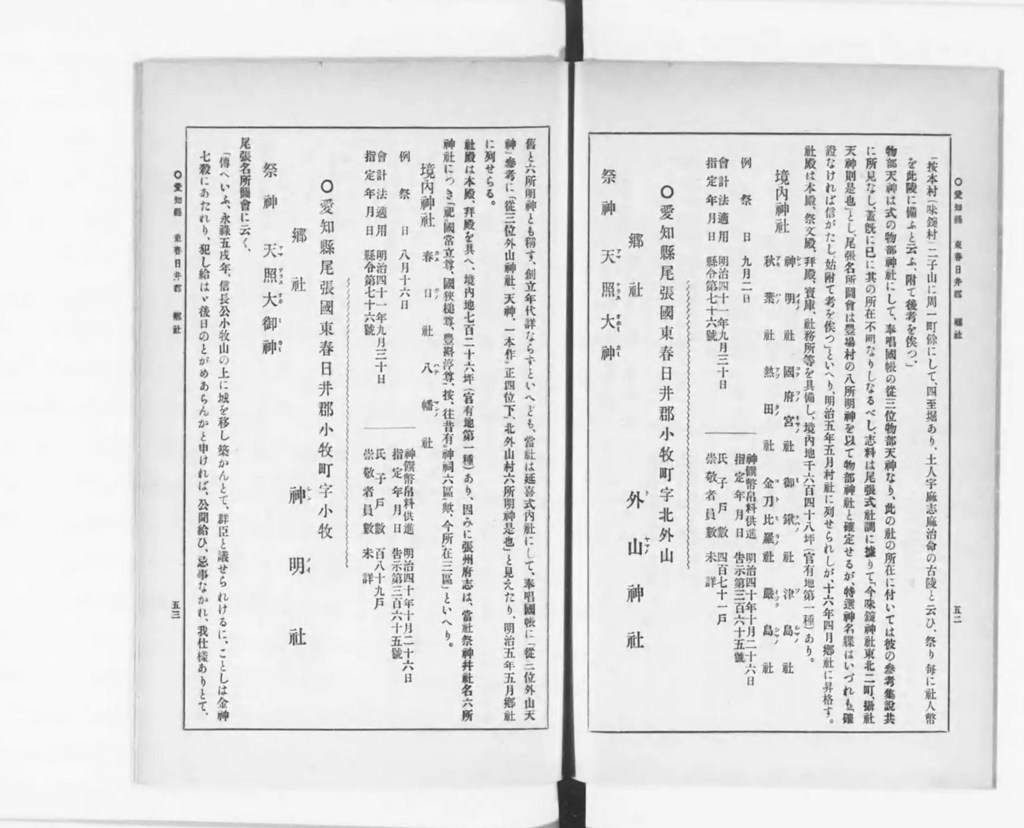 ○愛知縣 東春日井郡 鄕社
五二
「按本村(味鋺村)二子山に周一町餘にして、四至堀あり、土人宇麻志麻治命の古陵と云ひ、祭り每に社人幣
を此陵に備ふと云ふ、附て後考を俟つ、」
物部天神は式の物部神社にして、奉唱國帳の從三位物部天神なり、此の社の所在に付いては彼の參考集說共
に所見なし、蓋旣に已に其の所在不明なりしなるべし、志料は尾張式社調に據りて「今味鋺神社東北二町、攝社
天神則是也」とし、尾張名所圖會は豊場村の八所明神を以て物部神社と確定せるが、特選神名牒はいづれも、確
證なければ信がたし、姑附て考を俟つ」といへり、明治五年五月村社に列せられしが、十六年四月鄕社に昇格す。
社殿は本殿、祭文殿、拜殿、寶庫、社務所等を具備し、境內地千六百四十八坪(官有地第一種)あり。
境內神社
神明社 國府宮社 御鍬社 津島社
秋葉社 熱田社 金刀比羅社 嚴島社
例祭日 九月二日
會計法適用 明治四十一年九月三十日
指定年月日 縣令第七十六號
神饌幣帛料供進 明治四十年十月二十六日
指定年月日 告示第三百六十五號
氏子戶數 四百七十一戶
崇敬者員數 未詳
○愛知縣尾張國東春日井郡小牧町字北外山
鄕社 外山神社
祭神 天照大神
舊と六所明神とも稱す、創立年代詳ならずといへども、當社は延喜式內社にして、奉唱國帳に「從三位外山天
神」參考に「從三位外山神社、天神、一本作正四位下、北外山村六所明神是也」と見えたり、明治五年五月鄕社
に列せらる。
社殿は本殿、拜殿を具へ、境內地七百二十六坪(官有地第一種)あり、因みに張州府志は、當社祭神幷社名六所
神社につき「祀國常立尊、國狹槌尊、豊斟渟尊、按、往昔有神祠六區歟、今所在三區」といへり。
境內神社 春日社 八幡社
例祭日 八月十六日
會計法適用 明治四十一年九月三十日
指定年月日 縣令第七十六號
神饌幣帛料供進 明治四十年十月二十六日
指定年月日 告示第三百六十五號
氏子戶數 百八十九戶
崇敬者員數 未詳
○愛知縣尾張國東春日井郡小牧町字小牧
鄕社 神明社
祭神 天照大御神
尾張名所圖會に云く、
「傳へいふ、永祿五戌年、信長公小牧山の上に城を移し築かんとて、群臣と議せられけるに、ことしは金神
七殺にあたれり、犯し給はゞ後日のとがめあらんかと申ければ、公聞給ひ、忌事なかれ、我仕樣ありとて、
○愛知縣 東春日井郡 鄕社
五三